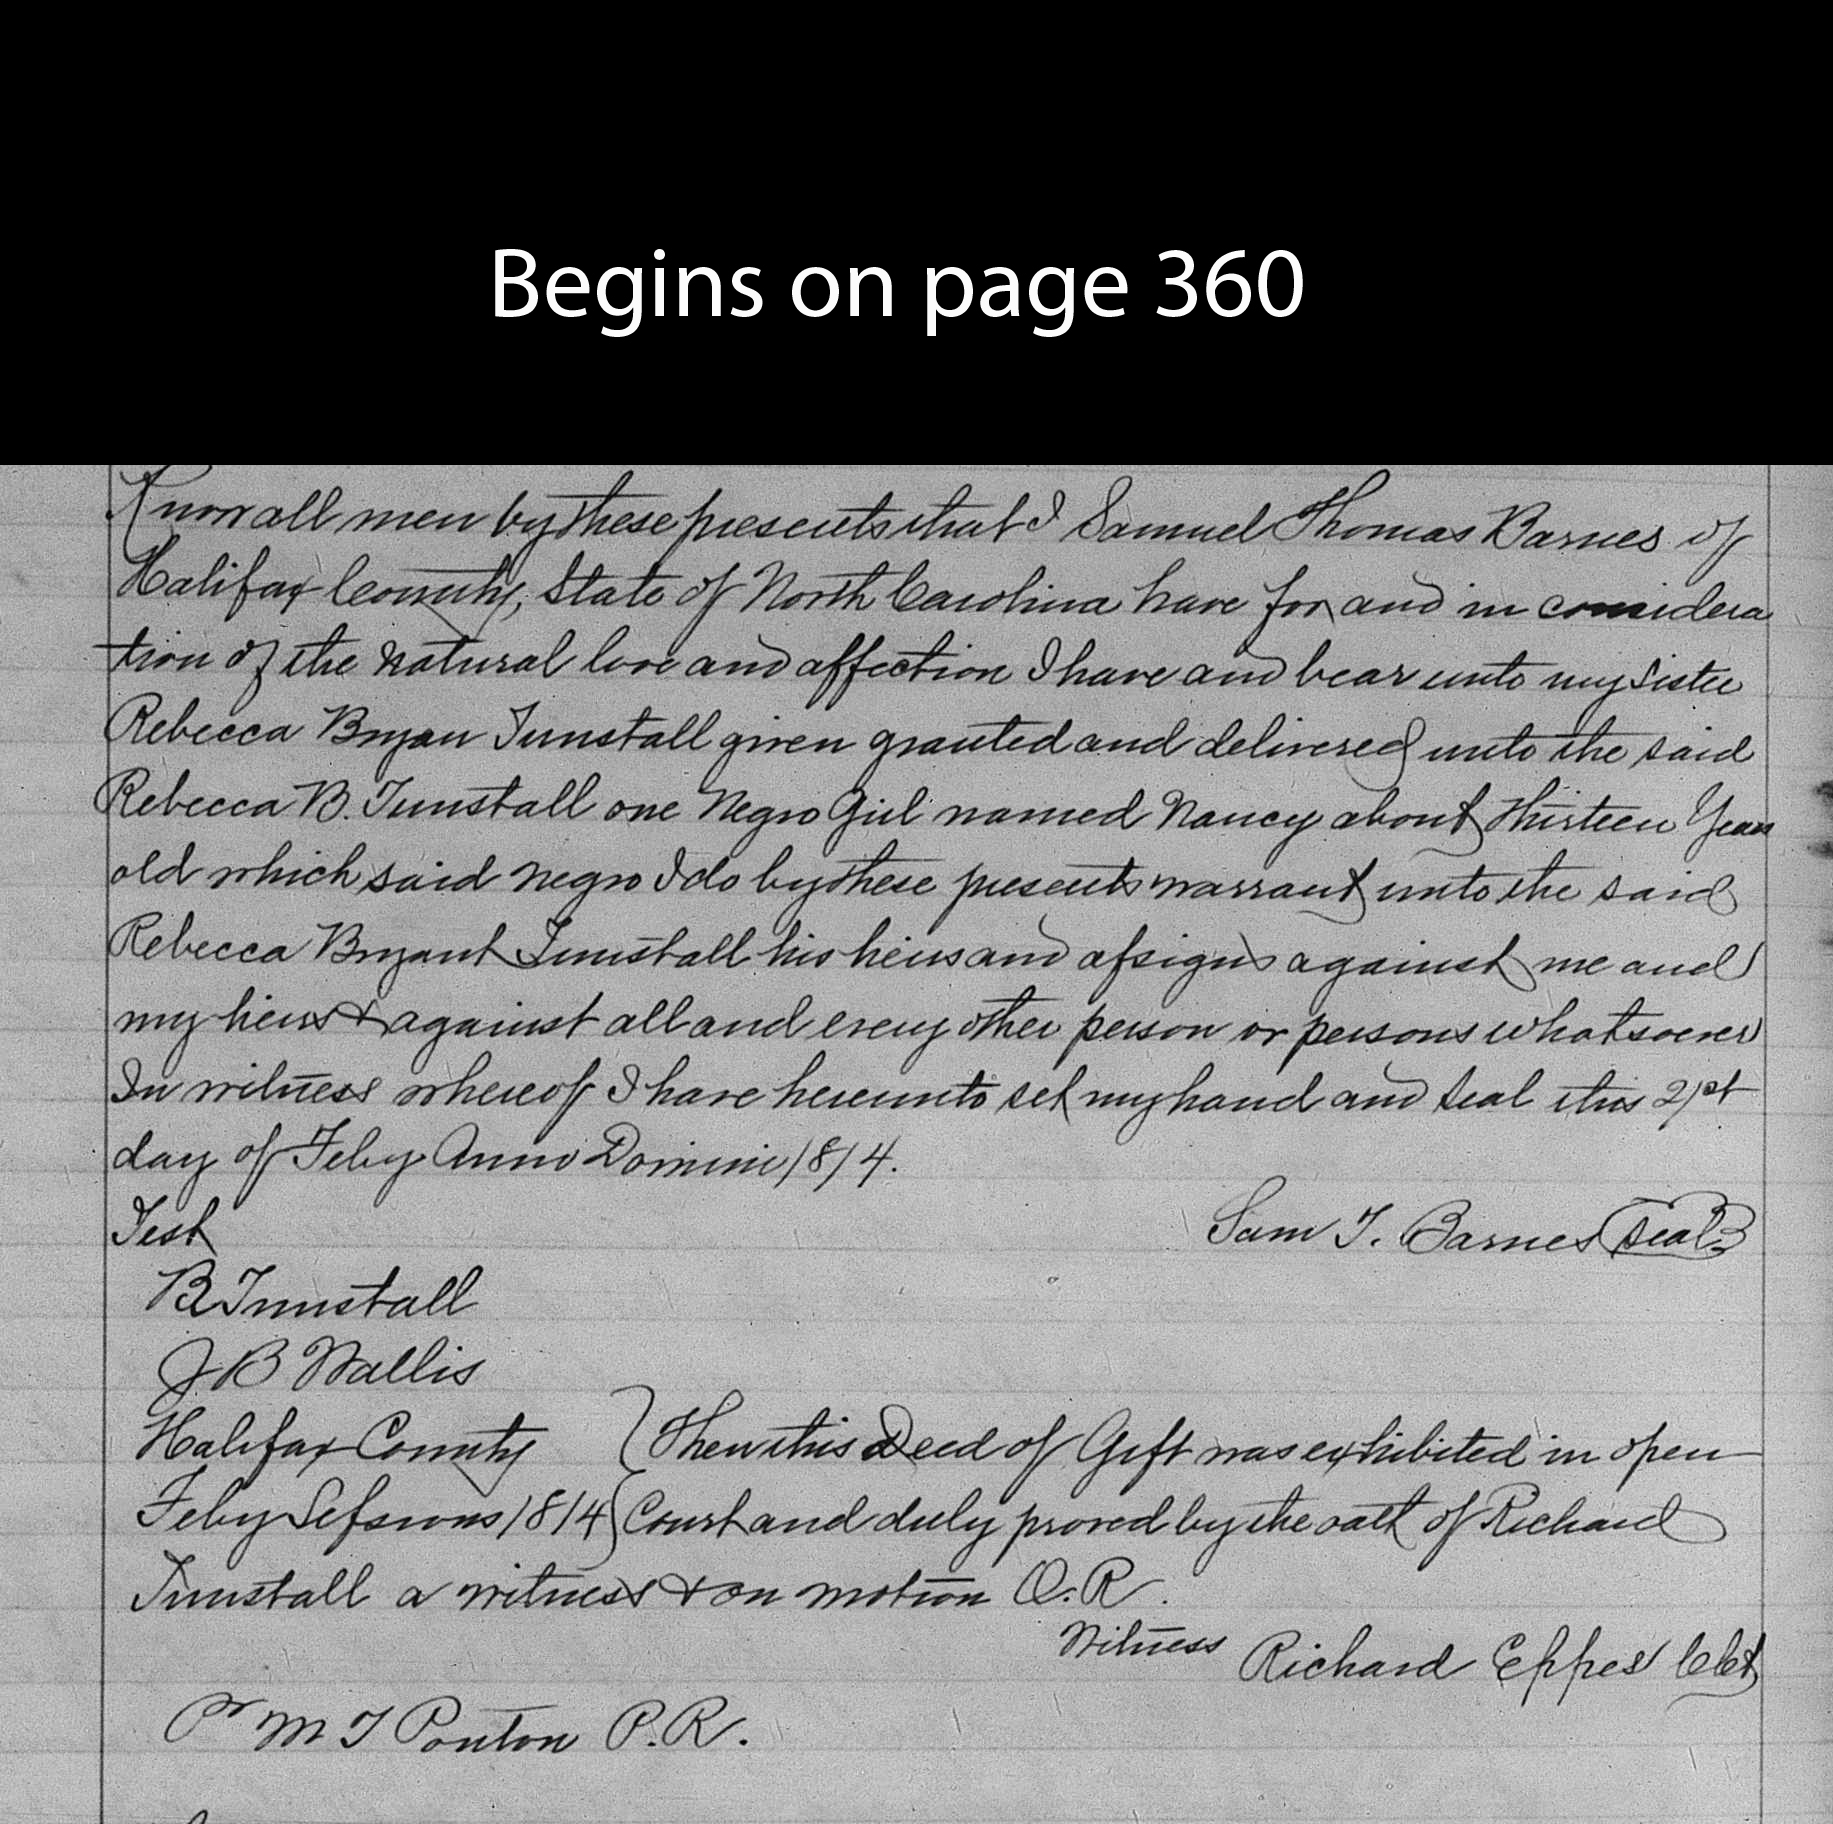 Begins on page 360
Know all men by these presents that I Samuel Thomas Barnes of
Halifax County, State of North Carolina have for and in considera
tion of the natural love and affection I have and bear unto my Sister
Rebecca Bryan Tunstall given granted and delivered unto the said
Rebecca B. Tunstall one Negro Girl named Nancy about thirteen Years
old which said negro I do by these presents warrant unto the said
Rebecca Bryant Tunstall his heirs and assigns against me and
my heirs & against all and every other person or persons whatsoever
In witness whereof I have hereunto set my hand and seal this 21st
day of Feby Anno Domini 1814.
Test
Sam T. Barnes Seal
R Tunstall
J B Wallis
Halifax County } Then this Deed of Gift was exhibited in open
Feby Sessions 1814 } Court and duly proved by the oath of Richard
Tunstall a witness & on motion O.R.
Witness Richard Eppes Clk
Pr M T Ponton P.R.